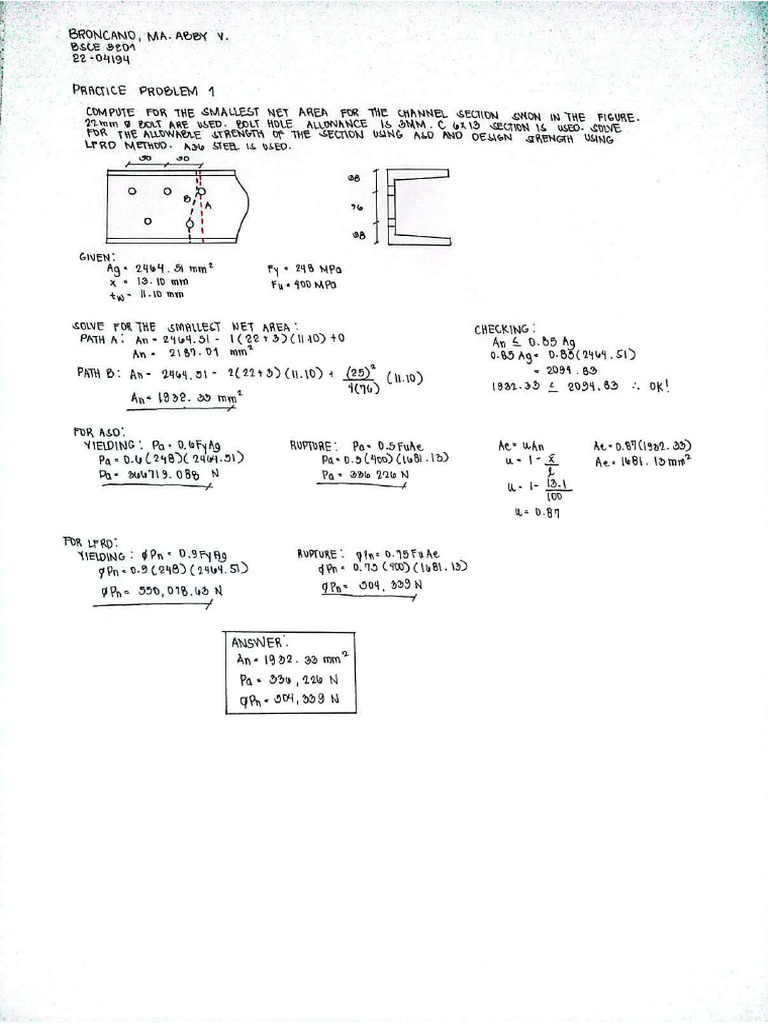 BRONCANO, MA. ABBY V.
BSCE 3201
22-04194
PRACTICE PROBLEM 1
COMPUTE FOR THE SMALLEST NET AREA FOR THE CHANNEL SECTION SHON IN THE FIGURE.
22mm ø BOLT ARE USED. BOLT HOLE ALLOWANCE IS 3MM. C 6x13 SECTION IS USED. SOLVE
FOR THE ALLOWABLE STRENGTH OF THE SECTION USING ASD AND DESIGN STRENGTH USING
LFRD METHOD. A36 STEEL IS USED.
50 50
B
A
38
76
38
GIVEN:
Ag = 2464.51 mm² Fy = 248 MPa
x = 13.10 mm Fu = 400 MPa
tw = 11.10 mm
SOLVE FOR THE SMALLEST NET AREA:
PATH A: An = 2464.51 - 1(22+3)(11.10)+0
An = 2187.01 mm²
PATH B: An = 2464.51 - 2(22+3)(11.10) + (25)²/4(76) (11.10)
An = 1932.33 mm²
CHECKING:
An ≤ 0.85 Ag
0.85 Ag = 0.85(2464.51)
= 2094.83
1932.33 ≤ 2094.83 ∴ OK!
FOR ASD:
YIELDING: Pa = 0.6FyAg
Pa = 0.6(248)(2464.51)
Pa = 366719.088 N
RUPTURE: Pa = 0.5FuAe
Pa = 0.5(400)(1681.13)
Pa = 336 226 N
Ae = uAn
u = 1 - x̄/l
u = 1 - 13.1/100
u = 0.87
Ae = 0.87(1932.33)
Ae = 1681.13 mm²
FOR LFRD:
YIELDING: øPn = 0.9FyAg
øPn = 0.9(248)(2464.51)
øPn = 550,078.63 N
RUPTURE: øPn = 0.75FuAe
øPn = 0.75(400)(1681.13)
øPn = 504,339 N
ANSWER:
An = 1932.33 mm²
Pa = 336,226 N
øPn = 504,339 N